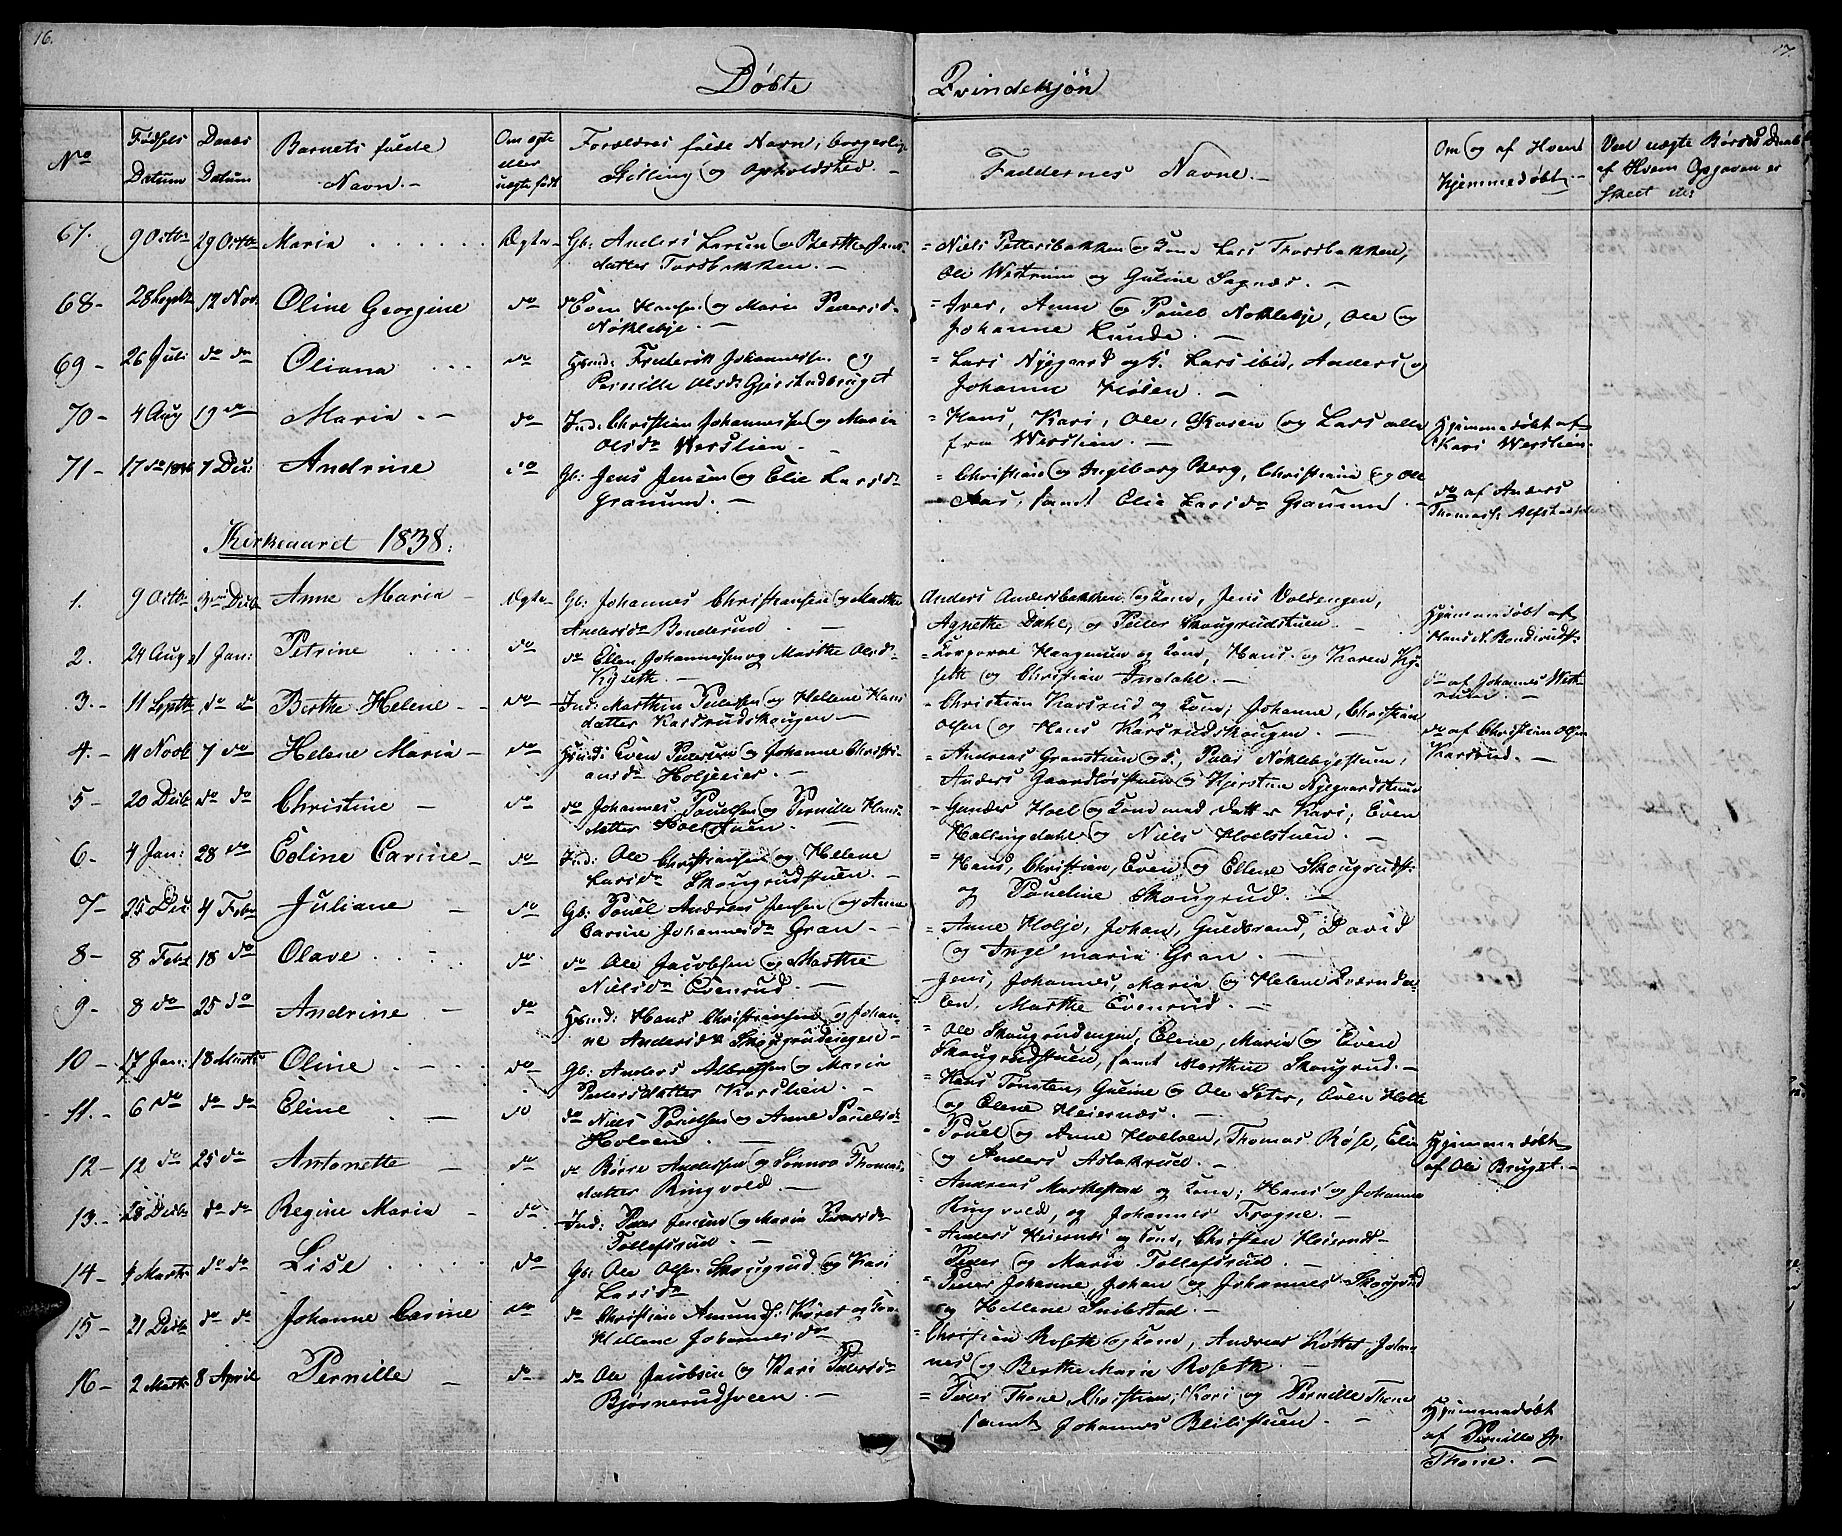 16.
17.
Døbte
Qvindekjøn
No
Fødsels Datum
Daabs Datum
Barnets fulde Navn.-
Om ægte eller uægte født
Forældres fulde Navn, borgerlige Stilling og Opholdsted.-
Faddernes Navne.-
Om og af Hvem Hjemmedøbt.-
Ved uægte Børns Daab af Hvem Opgaven er skeet etc:
67. 9 Octbr 29 Octbr Maria Ægte Gb: Anders Larsen og Berthe Jens-
datter Tordsbakken.- = Niels Pettersbakken og Kone Lars Thordsbakken,
Ole Westrum og Guline Sognæs.-
68- 28 Septbr 12 Nov. Oline Georgine do do Hansen og Marie Pedersd.
Nøklebye.- = Iver, Anne og Pouel Nøklebye, Ole og
Johanne Lunde.-
69- 26 Juli do do Oliana do Huusmd: Frederik Johannesen og
Pernille Olsd: Gjerstadbruget = Lars Nygaard og K. Lars ibid, Anders og
Johanne Kiølen.-
70- 4 Aug 19 do Maria.- do Ind: Christian Johannessen og Maria
Olsdr Werslien.- = Hans, Kari, Ole, Karen og Lars alle
fra Werslien.- Hjemmedøbt af
Kari Werslien.
71- 17 do 1836 7 Dec: Andrine do Gb: Jens Jensen og Elie Larsdr
Granum.- = Christian og Ingeborg Berg, Christian og Ole
Aas, samt Elie Larsdr Granum.- do af Anders
Thomas
Kirkeaaret 1838:
1. 9 Octbr 3 Decbr Anne Maria Ægte Gb: Johannes Christiansen og Marthe
Andersdr Bonderud.- Anders Andersbakken og Kone, Jens Voldengen,
Agnethe Dahl, og Peder Skougrudstuen.- Hjemmedøbt af
Hans N. Bonderudst.
2. 24 Aug 1 Jan: Petrine do do Ellen Johannessen og Marthe Olsd.
Kyseth.- = Haagensen og Kone, Hans og Karen Ky-
seth og Christian Indahl.- do af Johannes West-
rum.-
3.- 11 Septbr do do Berthe Helene do Ind: Marthin Pedersen og Hellene Hans
datter Karsrudskougen.- = Christian Karsrud og Kone, Johanne, Christian
Olsen og Hans Karsrudskougen.- do af Christian Olsen
Karsrud.-
4.- 11 Novbr 7 do Helene Maria do Huusmd: Even Pedersen og Johanne Christi-
ansdr Holjeeier.- = Andreas Granstuen og K., Peder Nøklebyestuen,
Anders Gaardløsstuen og Kjerstine Nygaardstuen
5- 20 Decbr do do Christine do do Johannes Pouelsen og Pernille Hans
datter Hoelstuen.- = Gunder Hoel og Kone med datter Kari, Even
Hallingdahl og Niels Hoelstuen.-
6- 4 Jan: 28 do Edine Carine do Ind: Ole Christiansen og Helene
Larsdr Skougrudstuen.- = Hans, Christian, Even, og Ellene Skougrudst:
og Pouline Skougrud.-
7- 25 Dec 4 Febr Juliane do Gb: Pouel Andreas Jensen og Anne
Carine Johannesdr Gran.- = Anne Holje, Johan, Guldbrand, David
og Ingemaria Gran.-
8- 8 Febr 18 do Olave do do Ole Jacobsen og Marthe
Nielsdr Evenrud.- -Jens, Johannes, Maria og Helene Qværnda-
len, Marthe Evenrud.-
9- 8 do 25 do Andrine do Huusmd: Hans Christiansen og Johan-
ne Andersdr Skougrudeiegen.- = Ole Skougrudengen, Eline, Maria og Even
Skougrudstuen, samt Marthin Skougrud.-
10- 17 Jan: 18 Marts Oline do Gb: Anders Albretsen og Maria
Pedersdatter Karslien.- = Hans Tømten, Guline og Ole Seter, Even Holte
og Elene Heiernæs.-
11.- 6 do do do Eline do do Niels Pouelsen og Anne Pouelsdr
Holven.- = Pouel og Anne Hoelven, Thomas Røse, Elie
og Anders Aslakrud.-
12- 12 do 25 do Antonette do do Børre Andersen og Sønnov Thomas-
datter Ringvold.- = Andreas Markestad og Kone, Hans og Johanne
Ringvold, og Johannes Frogne.- Hjemmedøbt
af Ole Bruget.-
13.- 28 Decbr do do Regine Maria do Ind: Peder Jensen og Maria Pedersdr
Tollefsrud.- = Anders Heiernæs og Kone, Christen Heiernæs-
Peder og Maria Tollefsrud.
14- 4 Marts do do Lise do Gb: Ole Olsen Skougrud og Kari
Larsdr = Peder Johanne, Johan og Johannes Skougrud
og Hellene Snibstad.-
15- 21 Decbr do do Johanne Carine do do Christian Amunds: og
Hellene Johannesdr = Christian Roseth og Kone, Andreas Kottet, Johan-
nes og Berthe Marie Roseth.-
16- 2 Marts 8 April Pernille do do Ole Jacobsen og Kari Pedersdr
Bjørnerudsveen.- = Peder Thone, Christian, Kari og Pernille Thone
samt Johannes Bleilistuen.- Hjemmedøbt
af Pernille
Thone.-